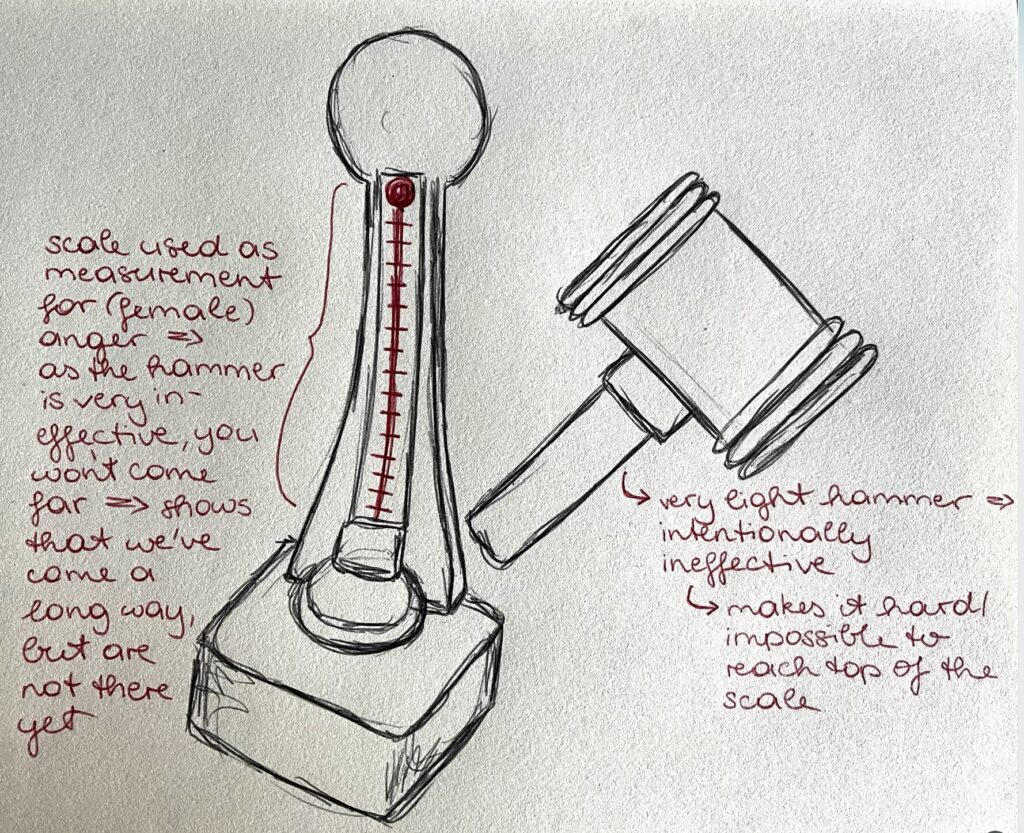 scale used as
measurement
for (female)
anger =>
as the hammer
is very in-
effective, you
won't come
far => shows
that we've
come a
long way,
but are
not there
yet
very light hammer =>
intentionally
ineffective
makes it hard/
impossible to
reach top of the
scale